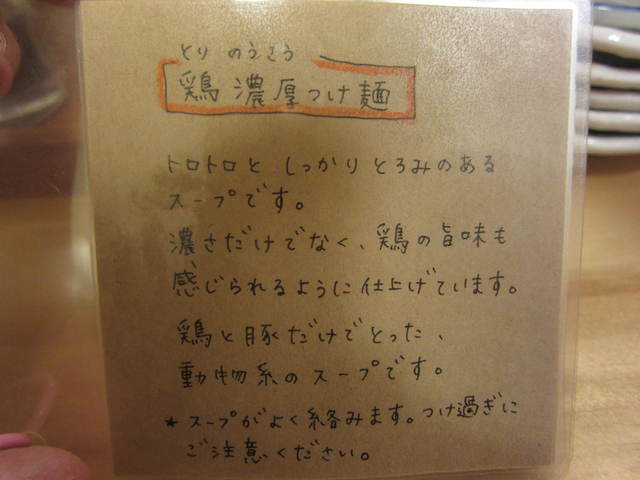 とり のうこう
鶏濃厚つけ麺
トロトロと しっかりとろみのある
スープです。
濃さだけでなく、鶏の旨味も
感じられるように仕上げています。
鶏と豚だけでとった、
動物系のスープです。
* スープがよく絡みます。つけ過ぎに
ご注意ください。